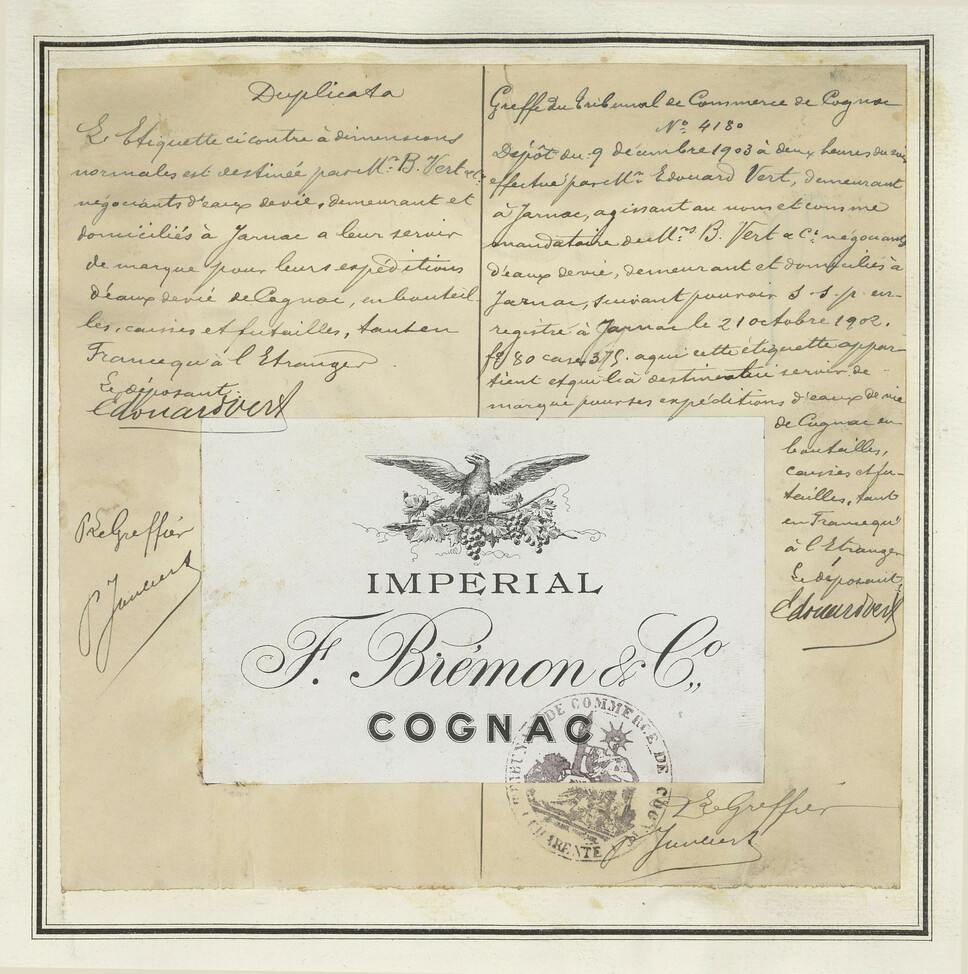 Duplicata
L'Etiquette ci contre à dimensions
normales est destinée par Mr. B. Vert & Cie
négociants d'eaux de vie, demeurant et
domiciliés à Jarnac a leur servir
de marque pour leurs expéditions
d'eaux de vie de Cognac, en bouteil-
les, caisses et futailles, tant en
France qu'à l'Etranger.
Le déposant,
Edouard Vert
P. Le Greffier
Greffe du Tribunal de Commerce de Cognac
No. 4180
Dépôt du 9 décembre 1903 à deux heures du soir
effectué par Mr. Edouard Vert, demeurant
à Jarnac, agissant au nom et comme
mandataire de Mrs. B. Vert & Cie négociants
d'eaux de vie, demeurant et domiciliés à
Jarnac, suivant pouvoir s.s.p. en-
registré à Jarnac le 21 octobre 1902.
fo 80 case 375. a qui cette étiquette appar-
tient et qui l'a destinée à lui servir de
marque pour ses expéditions d'eaux de vie
de Cognac en
bouteilles,
caisses et fu-
tailles, tant
en France qu'
à l'Etranger
Le déposant,
Edouard Vert
IMPERIAL
F. Brémon & Co.
COGNAC
TRIBUNAL DE COMMERCE DE COGNAC
CHARENTE
P. Le Greffier